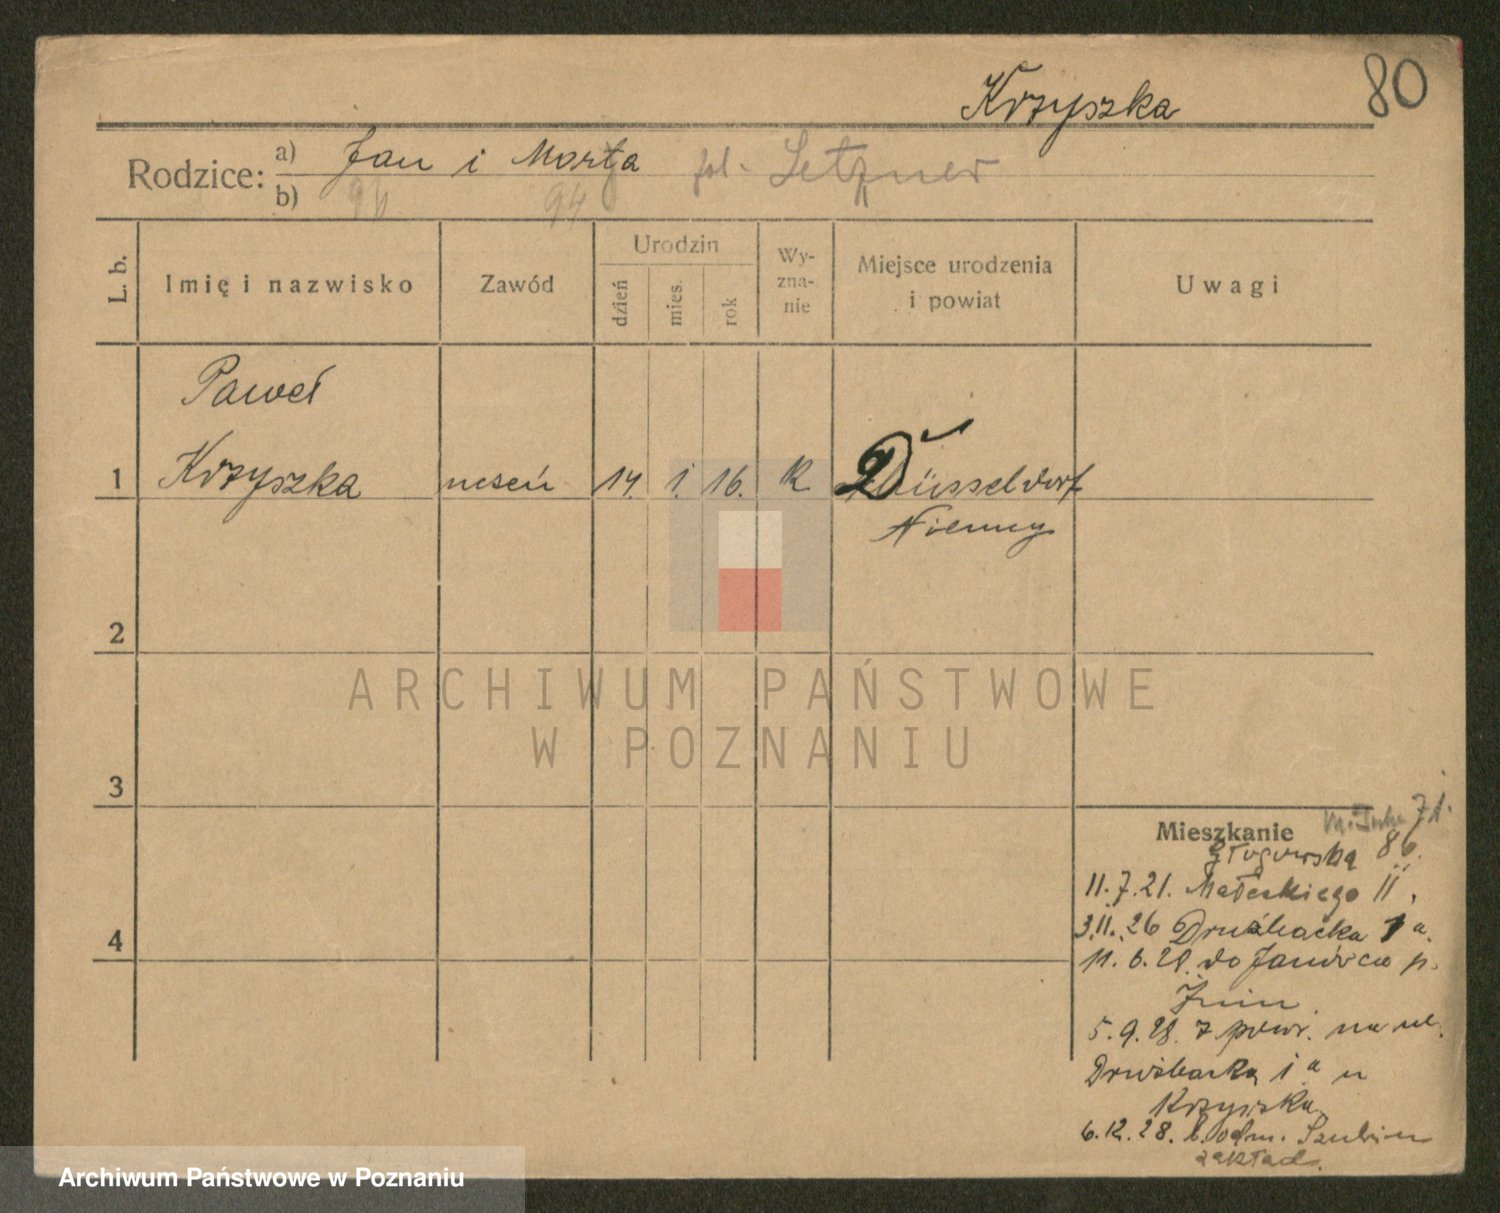 80
Krzyszka
Rodzice: a) Jan i Marta Letzner
b) 94
L. b. Imię i nazwisko Zawód Urodzin dzień mies. rok Wyznanie Miejsce urodzenia i powiat Uwagi
Paweł
1 Krzyszka uczeń 14. 1. 16. k Düsseldorf
Niemcy
2
3
4
ARCHIWUM PAŃSTWOWE
W POZNANIU
71.
Mieszkanie
Głogowska 86.
11.7.21. Małeckiego II.
3.11.26 Drużbacka 1 a.
11.6.28. do Janówca p.
Żnin.
5.9.28. z powr. na ul.
Drużbacka 1 a u
Krzyszka
6.12.28. Szubin
zakład.
Archiwum Państwowe w Poznaniu